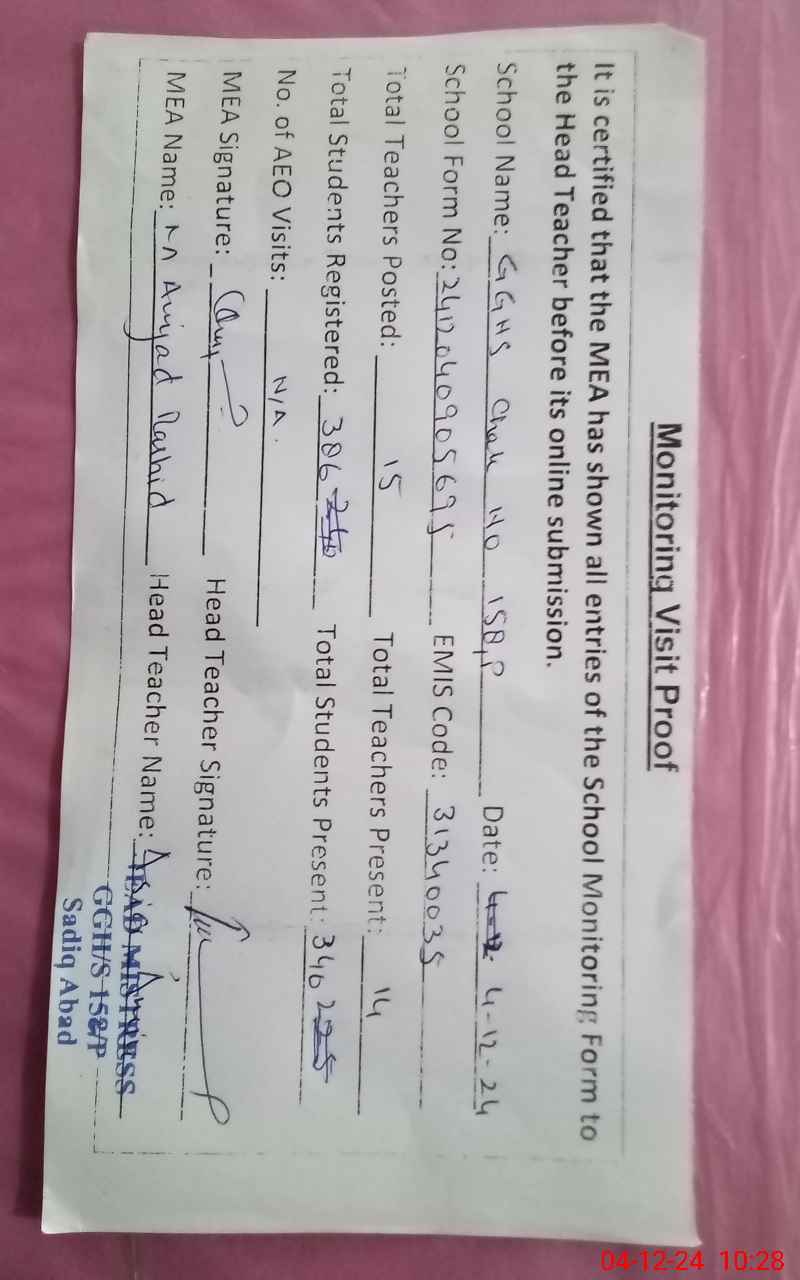 Monitoring Visit Proof
It is certified that the MEA has shown all entries of the School Monitoring Form to
the Head Teacher before its online submission.
School Name: GGHS Chak No 158,P Date: 4-12-24
School Form No: 2412040905695 EMIS Code: 31340035
Total Teachers Posted: 15 Total Teachers Present: 14
Total Students Registered: 386 Total Students Present: 340
No. of AEO Visits: N/A.
MEA Signature: Head Teacher Signature:
MEA Name: Amjad Rashid Head Teacher Name:
HEAD MISTRESS
GGH/S 158/P
Sadiq Abad
04-12-24 10:28